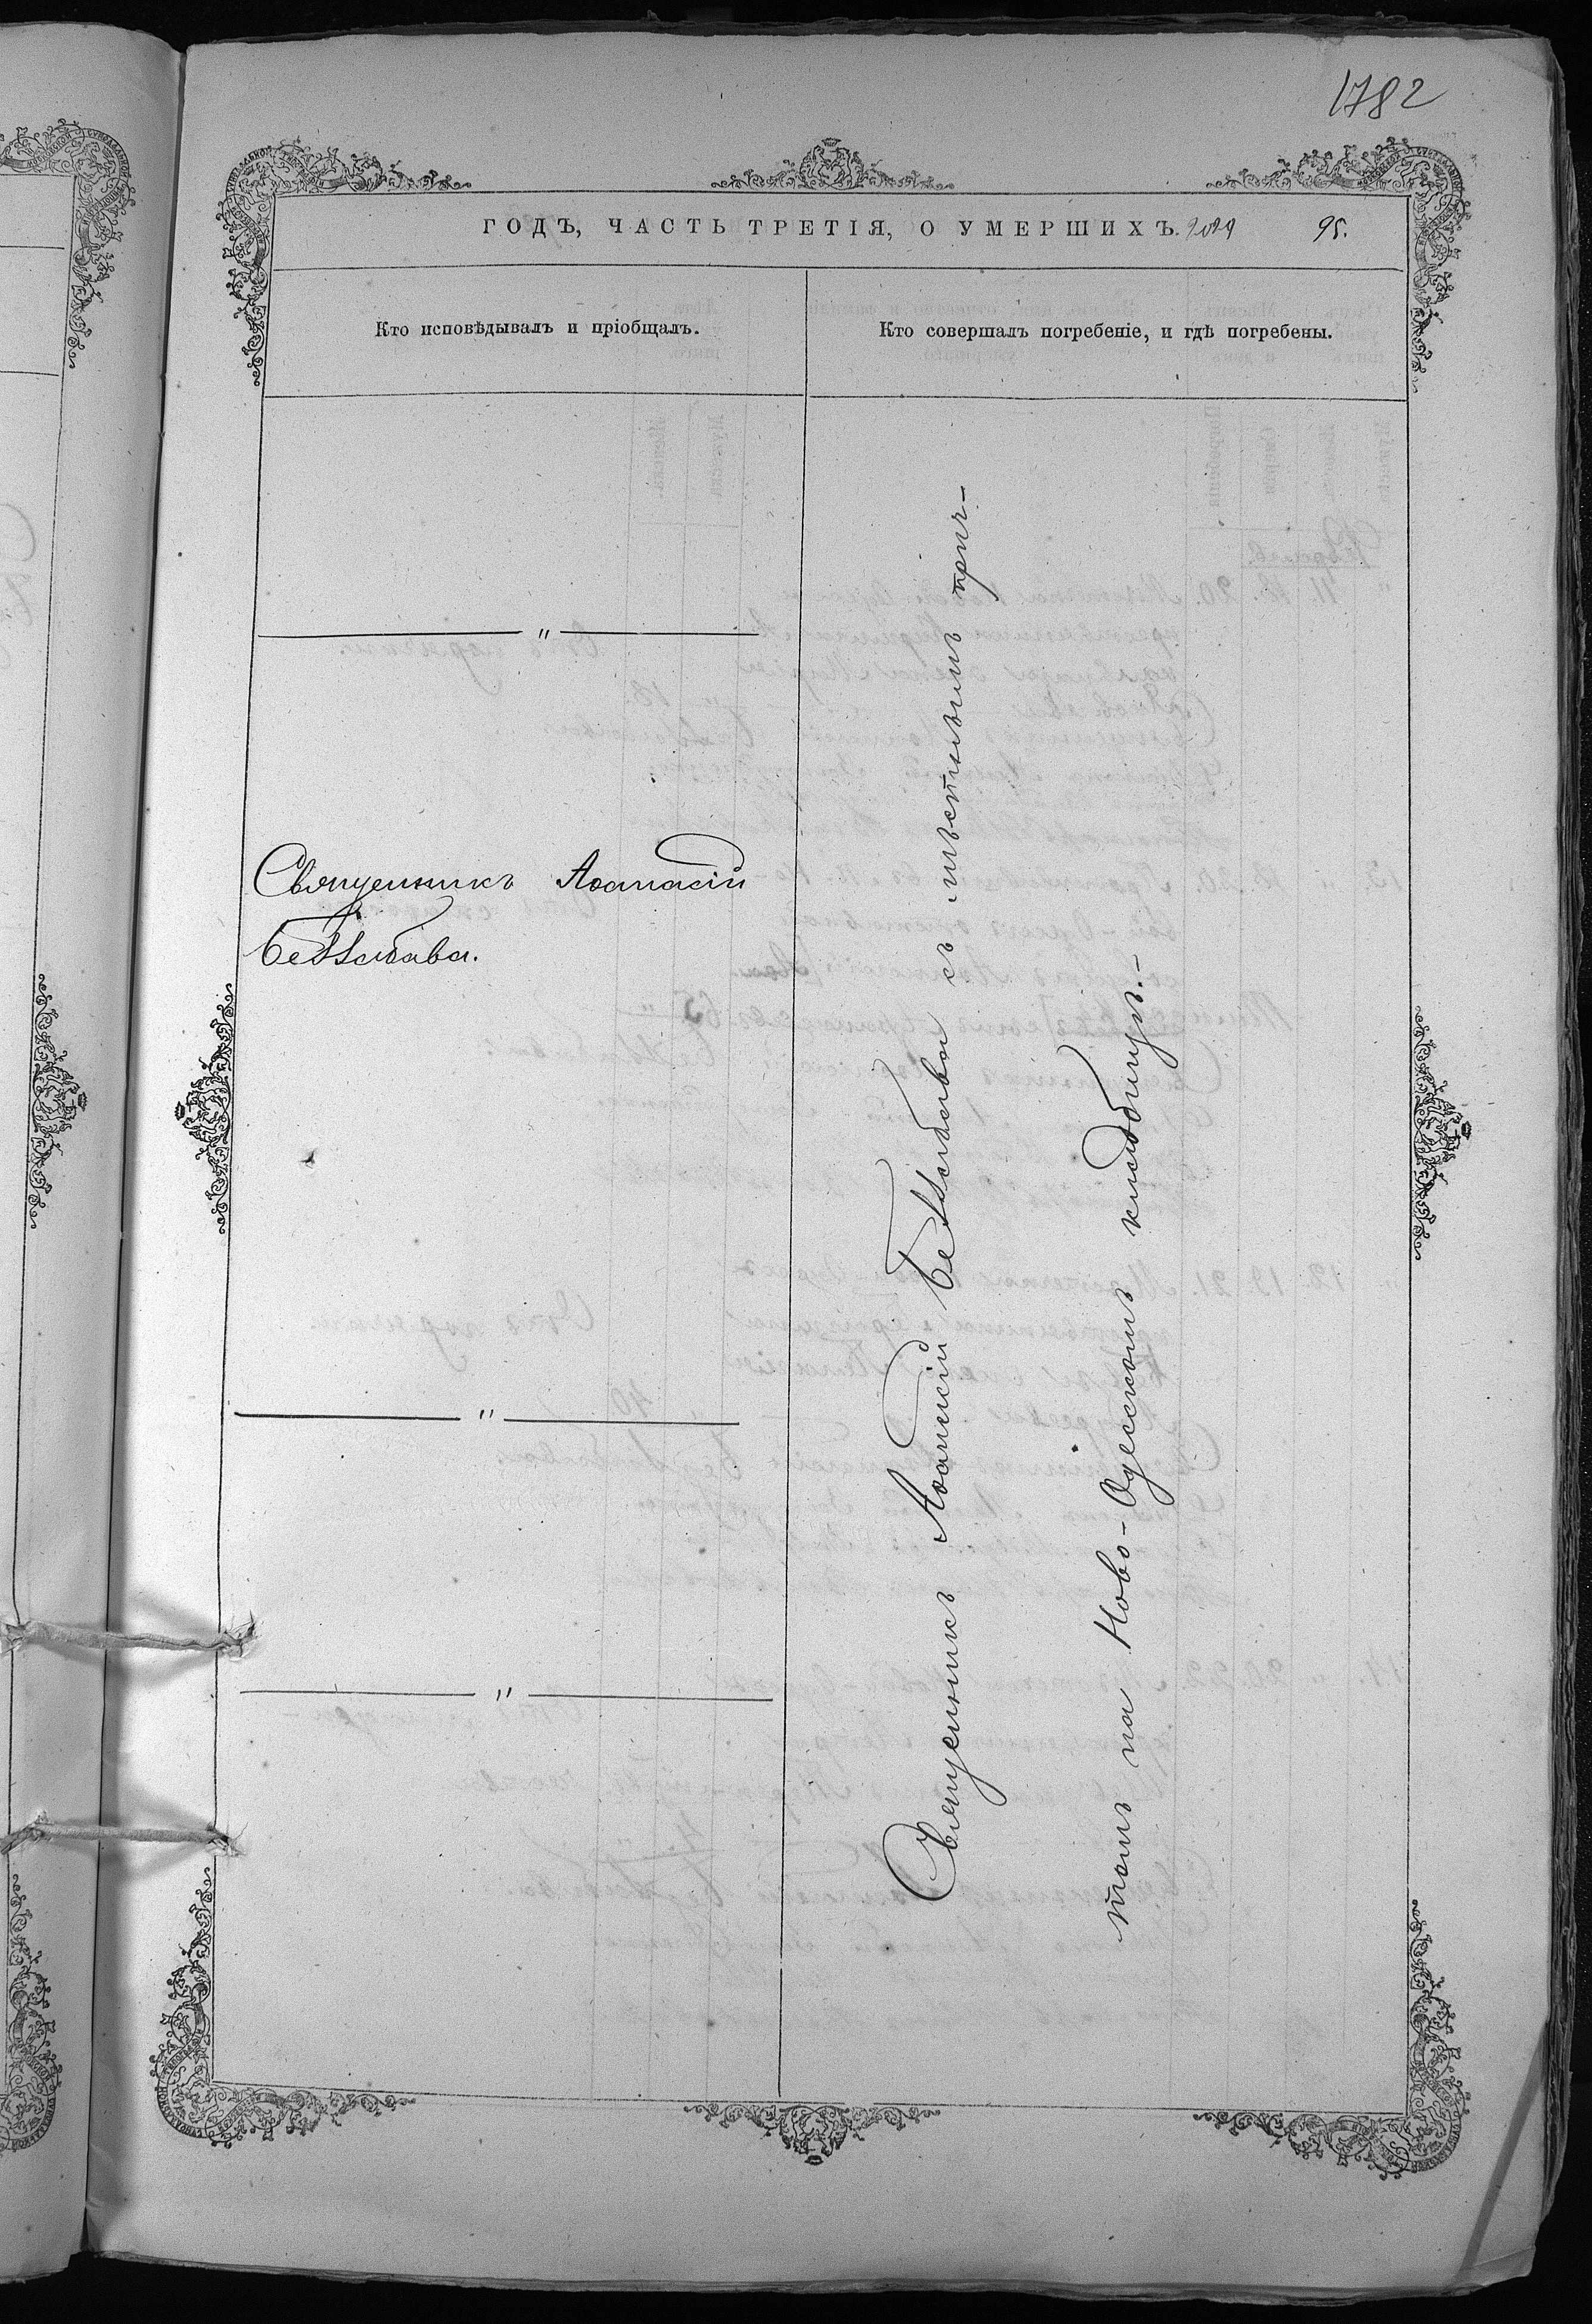 1782
ГОДЪ, ЧАСТЬ ТРЕТІЯ, О УМЕРШИХЪ.
95.
Кто исповѣдывалъ и пріобщалъ.
Кто совершалъ погребеніе, и гдѣ погребены.
"
Священникъ Аѳанасій
"
"
Священникъ Аѳанасій съ мѣстнымъ прич-
томъ на Ново-Одесскомъ кладбищѣ.-